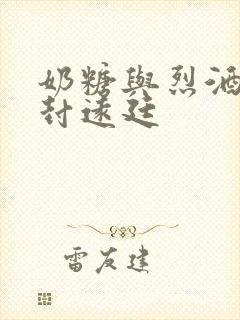 奶糖與烈酒
封遠廷
雷友建